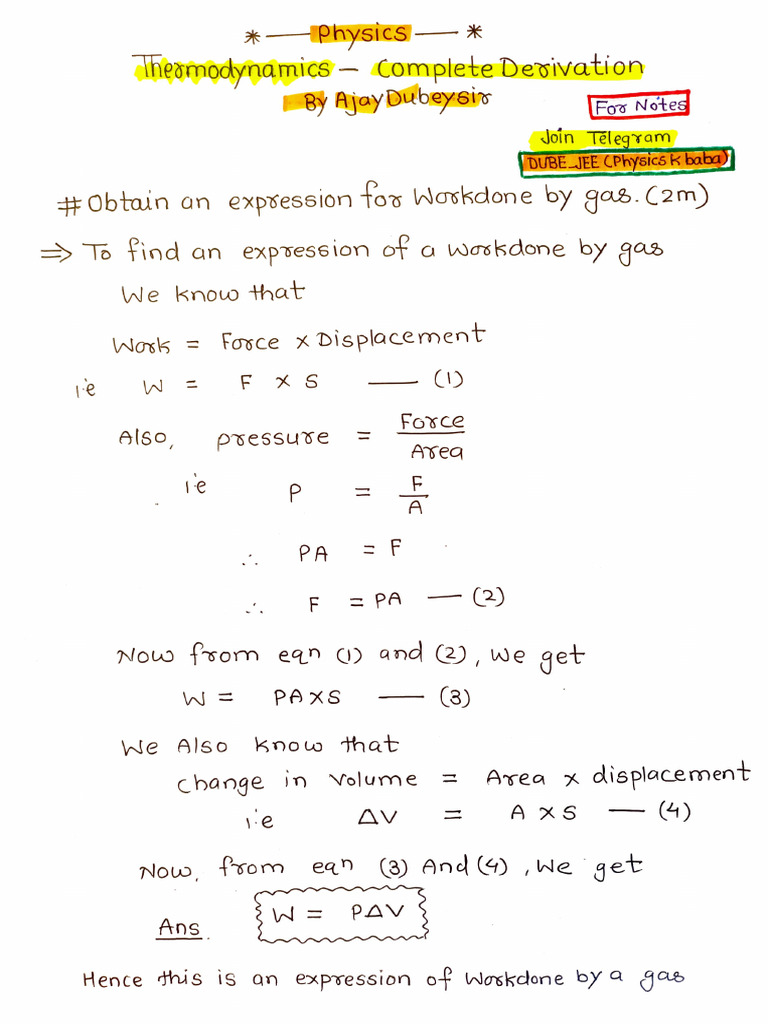 * — Physics — *
Thermodynamics – Complete Derivation
By Ajay Dubey sir
For Notes
Join Telegram
DUBE_JEE (Physics k baba)
# Obtain an expression for Workdone by gas. (2m)
⇒ To find an expression of a workdone by gas
We know that
Work = Force x Displacement
i.e W = F x S — (1)
Also, pressure = Force / Area
i.e P = F / A
∴ PA = F
∴ F = PA — (2)
Now from eqn (1) and (2), we get
W = PAxS — (3)
We Also know that
change in volume = Area x displacement
i.e ΔV = A x S — (4)
Now, from eqn (3) And (4), We get
Ans. W = PΔV
Hence this is an expression of Workdone by a gas